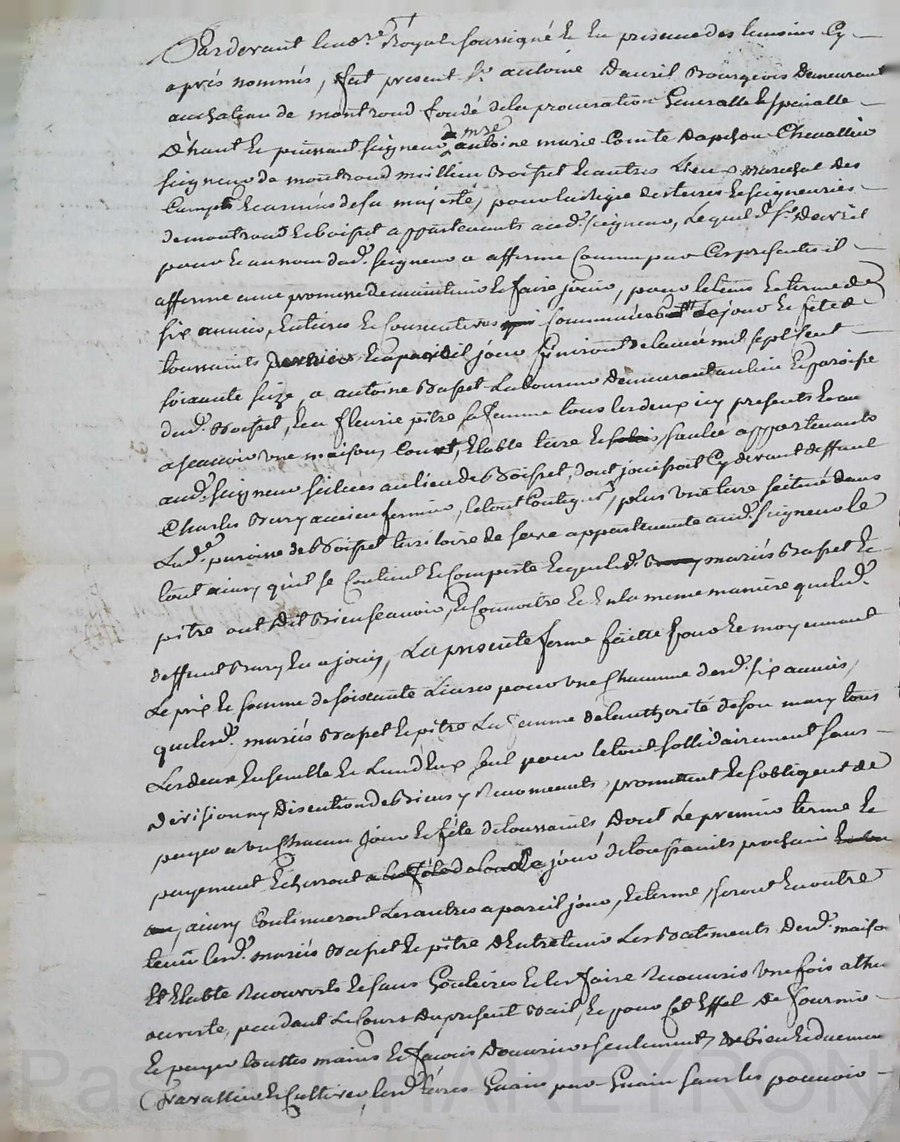 Pardevant le no.re Royal soussigné Et En presence des temoins Cy
aprés nommés, fut present Sr antoine Dauril Bourgeois Demeurant
au chateau de montrond fondé de la procuration Generalle Et specialle
D'haut Et puissant seigneur mre antoine marie Comte Dapchon Chevallier
seigneur de montrond meillieu Boisset Et autres Lieux marechal des
Camps Et armées de sa majesté, pour la regie des terres Et seigneuries
de montrond Et boisset appartenants aud. seigneur, Lequel d. Sr Dauril
pour Et au nom dud. seigneur a affermé Comme par Ces presentes il
afferme avec promesse de maintenir Et faire jouir, pour le tems Et terme de
six années Entieres Et Consecutives Commencées le jour Et fete de
toussaints Et a pareil jour finiront de lannée mil sept Cent
soixante seize, a antoine Bapet Laboureur Demeurant au lieu Et paroisse
dud. Boisset, Et a fleurie pitre sa femme tous les deux icy presents
a scavoir une maison, Cour, Etable terre Et appartenants
aud. seigneur scituées au lieu de Boisset, dont jouissoit Cy devant deffunt
Charles Bury ancien fermier, le tout Contigus, plus une terre scituée dans
Lad. paroisse de Boisset territoire de serre appartenante aud. seigneur le
tout ainsy quil se Contient Et Comporte Et que lesd. mariés Bapet Et
pitre ont dit Bien scavoir, Et Connoitre Et En la meme maniere que led.
deffunt Bury En a jouis, La presente ferme faitte pour Et moyennant
Le prix Et somme de soixante Livres pour une Chacune desd. six années,
que lesd. mariés Bapet Et pitre La femme de lauthorité de son mary tous
Les deux Ensemble Et Lun d'Eux seul pour le tout sollidairement sans
division ny discution de Biens y Renonceants, promettent Et sobligent de
payer a un Chacun jour Et fête de toussaints Dont Le premier terme Et
payement Echerront jour de toussaints prochain
ainsy Continueront Les autres a pareil jour, Et terme, seront En outre
tenus lesd. mariés Bapet Et pitre d'Entretenir Les Batiments desd. maison
Et Etable Recouverts Et sans Goutieres Et les faire Recouvrir une fois a thuile
ouverte, pendant Le Cours du present Bail, Et pour Cet Effet De fournir
Et payer touttes mains Et favoir seulement, de bien Et duement
travallier Et Cultiver lesd. terres Gain par Gain sans les pouvoir
Pascal CHAREYRON